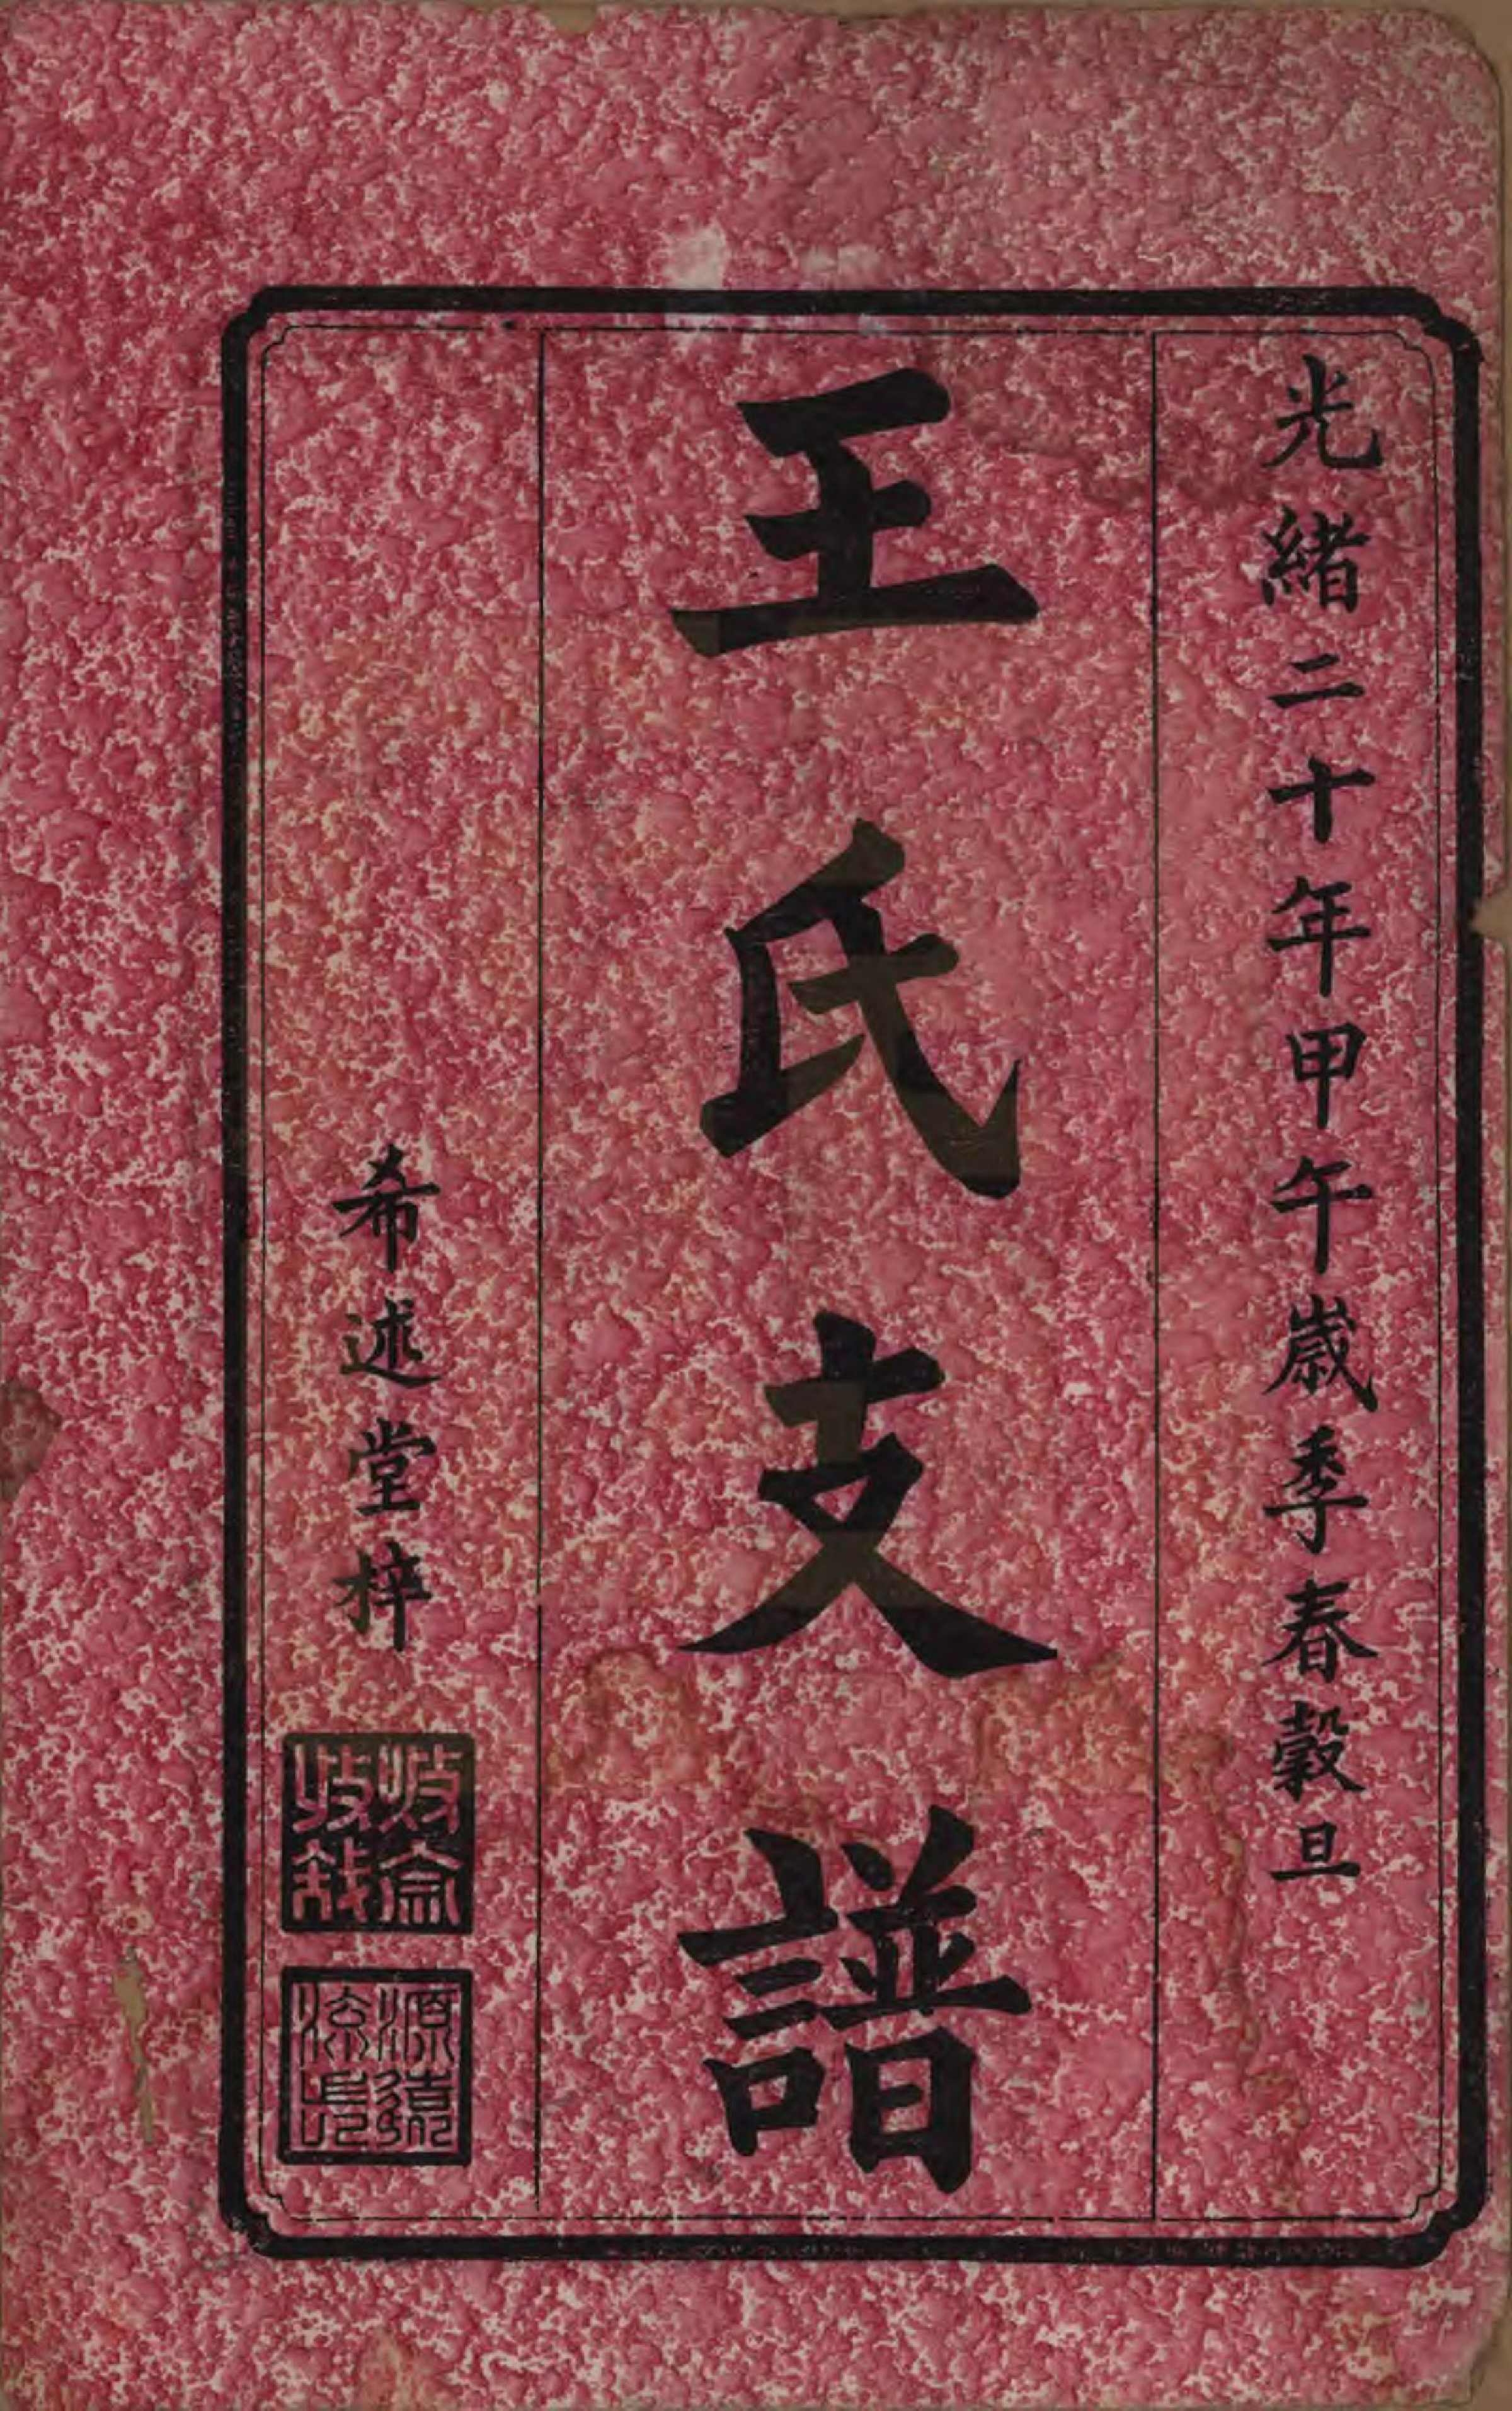 光緒二十年甲午歲季春穀旦
王氏支譜
希述堂梓
源遠
流長